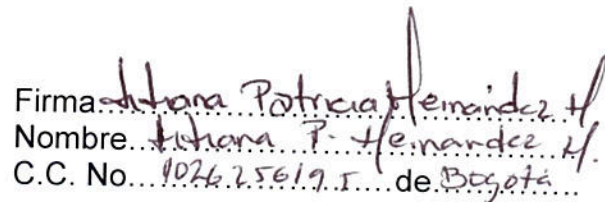 Firma Tatiana Patricia Hernández H
Nombre Tatiana P. Hernandez H.
C.C. No. 1026256195 de Bogotá